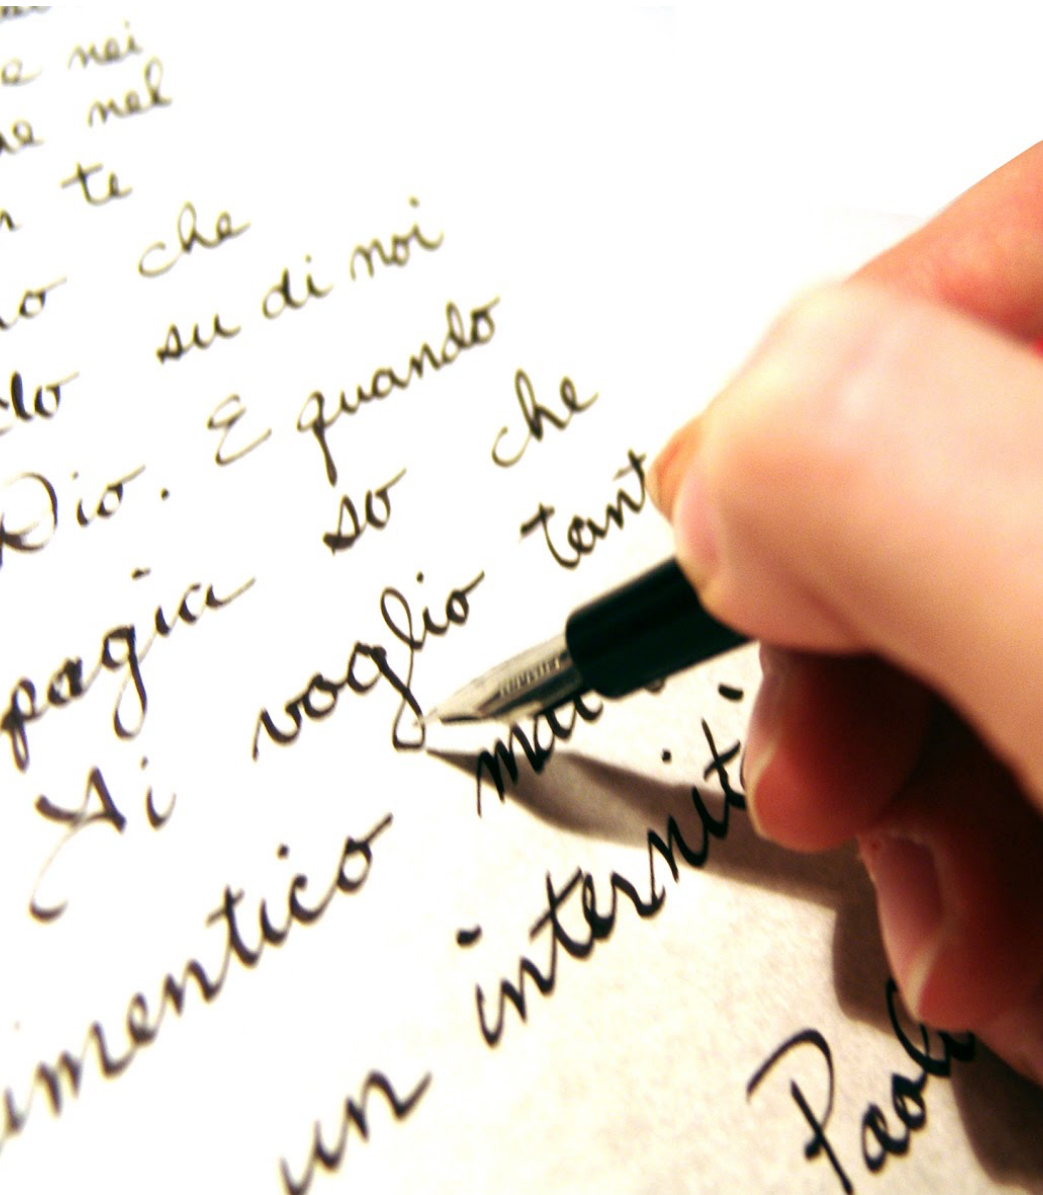 nei
nel
te
che
su di noi
Dio. E quando
pagia so che
Ti voglio tant
imentico mai
un internit
Paol